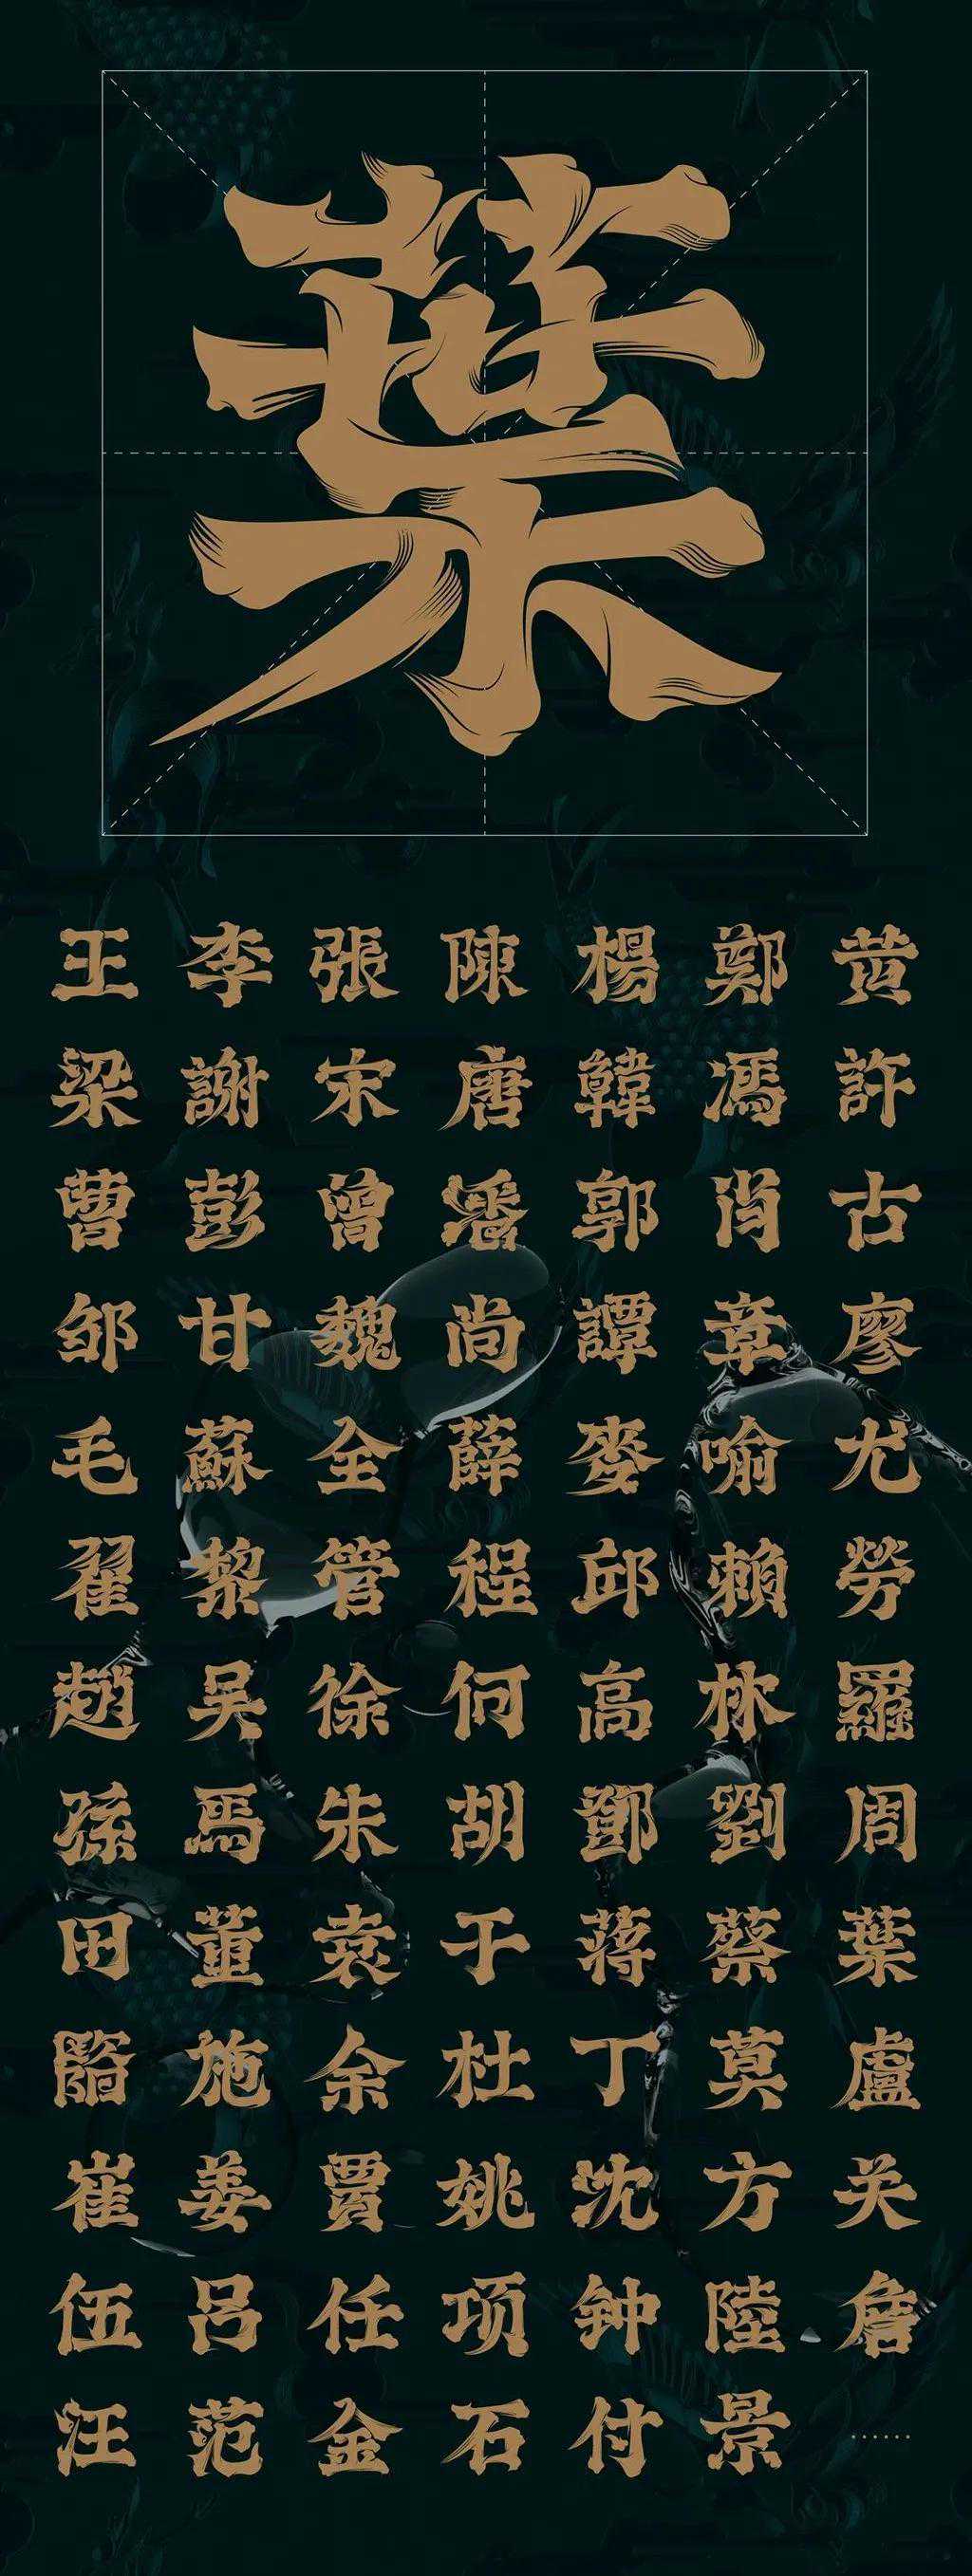 葉
王 李 張 陳 楊 鄭 黄
梁 謝 宋 唐 韓 馮 許
曹 彭 曾 潘 郭 肖 古
邹 甘 魏 尚 譚 章 廖
毛 蘇 全 薛 麥 喻 尤
翟 黎 管 程 邱 賴 勞
趙 吴 徐 何 高 林 羅
孫 焉 朱 胡 鄧 劉 周
田 董 袁 于 蒋 蔡 葉
施 余 杜 丁 莫 盧
崔 姜 賈 姚 沈 方 关
伍 呂 任 项 钟 陸 詹
汪 范 金 石 付 景 ……